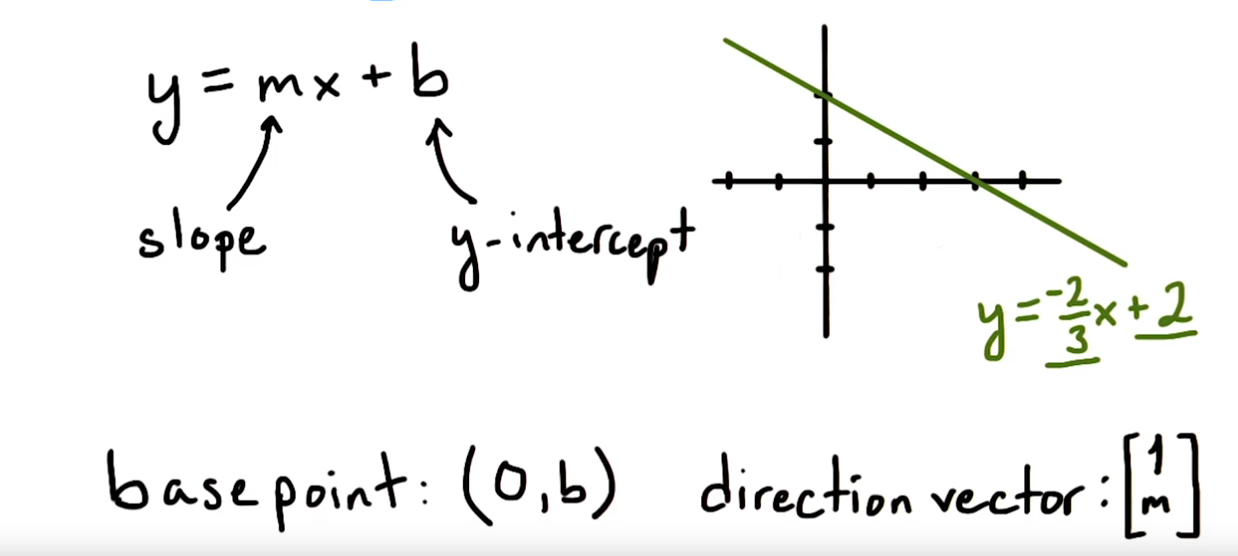 y = mx + b
slope
y-intercept
y = -2/3 x + 2
base point: (0,b)
direction vector: [1 m]